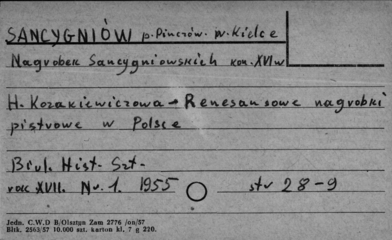 SANCYGNIÓW p. Pinczów. w. Kielce
Nagrobek Sancygniowskich kon. XVI w
H. Kozakiewiczowa → Renesansowe nagrobki
piętrowe w Polsce
Biul. Hist. Szt.
rok XVII. Nr. 1. 1955 str 28-9
Jedn. C.W.D B/Olsztyn Zam 2776 /on/57
Bltk. 2563/57 10.000 szt. karton kl. 7 g 220.